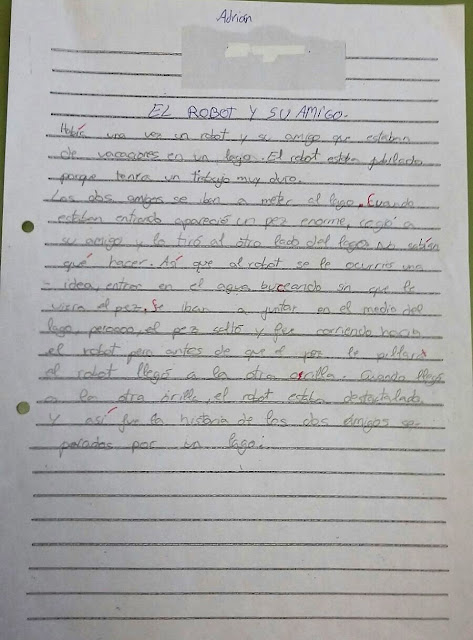 Adrián
EL ROBOT Y SU AMIGO.
Había una vez un robot y su amigo que estaban
de vacaciones en un lago. El robot estaba jubilado
porque tenía un trabajo muy duro.
Los dos amigos se iban a meter al lago. Cuando
estaban entrando apareció un pez enorme, cogió a
su amigo y lo tiró al otro lado del lago, no sabían
qué hacer. Así que al robot se le ocurrió una
idea, entrar en el agua buceando sin que le
viera el pez. Se iban a juntar en el medio del
lago, pero el pez saltó y fue corriendo hacia
el robot pero antes de que el pez le pillara
el robot llegó a la otra orilla. Cuando llegó
a la otra orilla, el robot estaba destartalado
y así fue la historia de los dos amigos se-
parados por un lago.